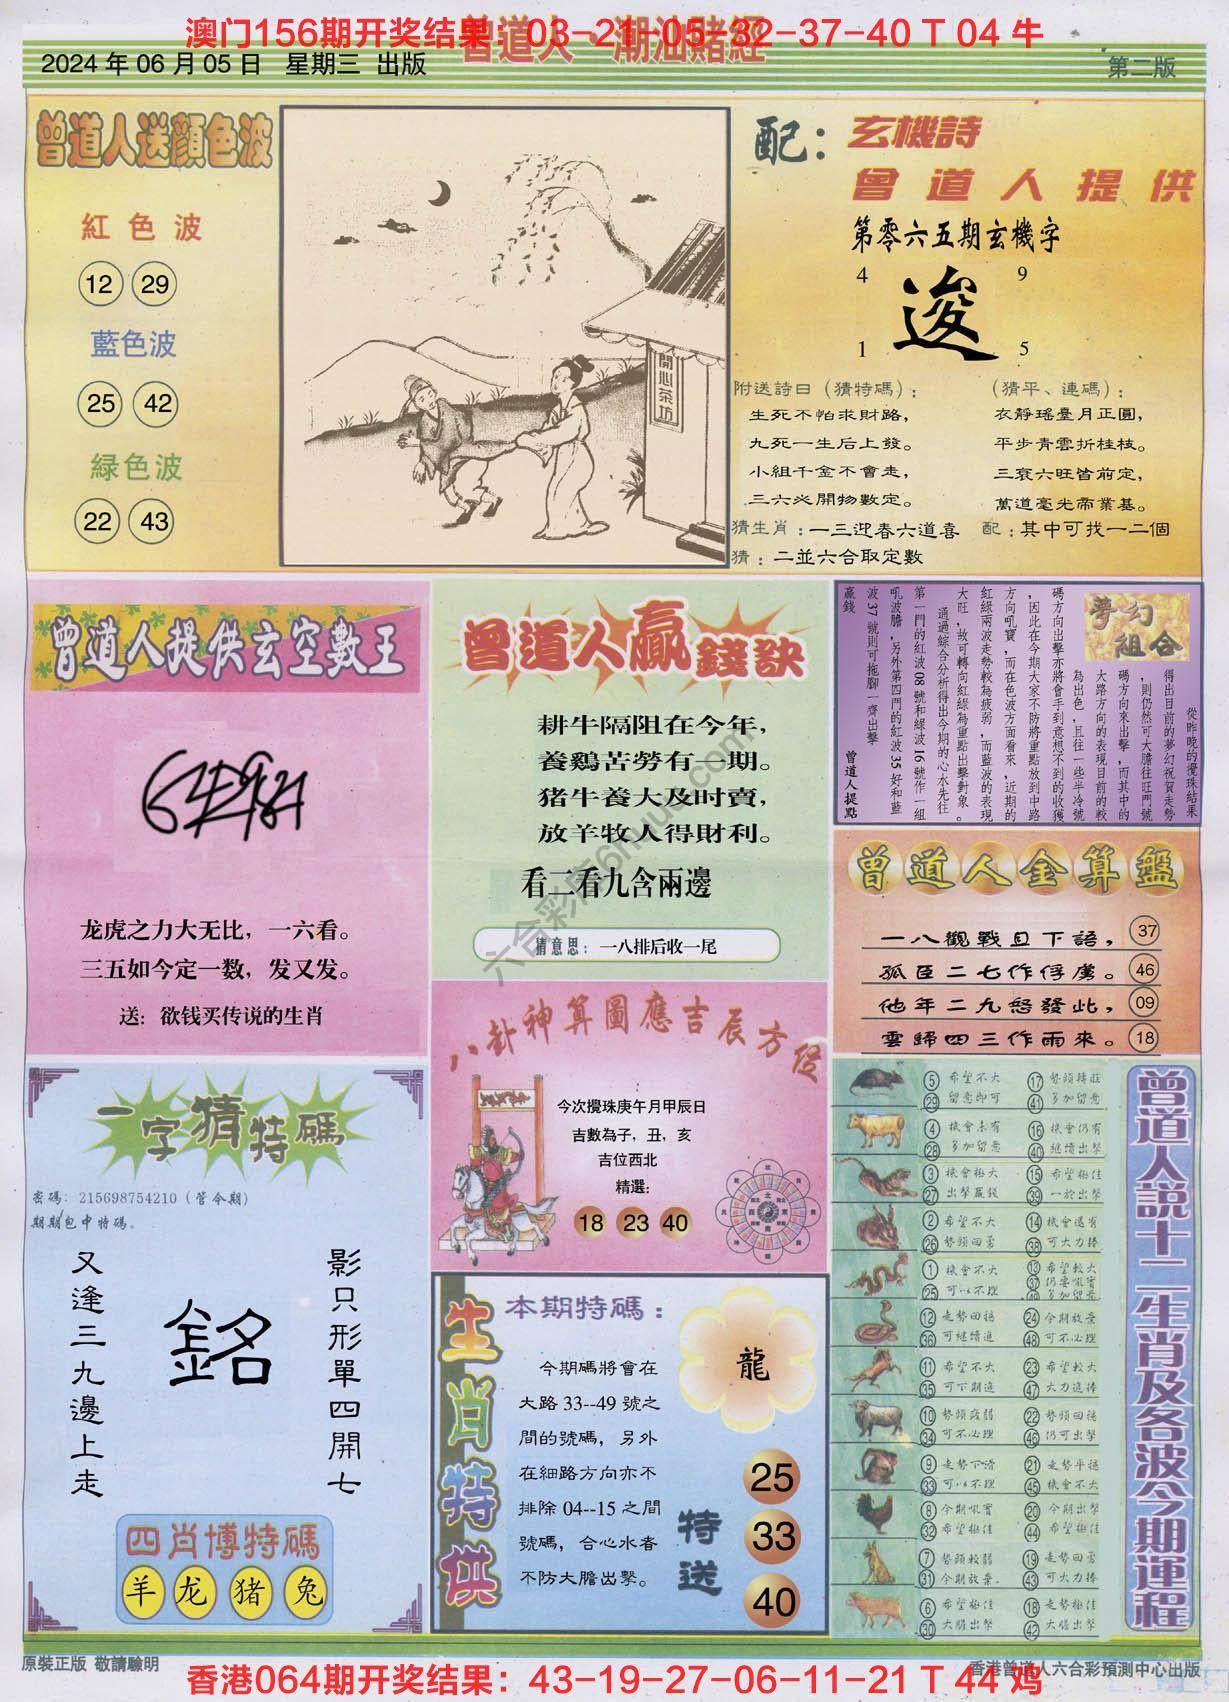 曾道人·潮汕賭經
澳门156期开奖结果：03-21-05-32-37-40 T 04 牛
2024 年 06 月 05 日 星期三 出版
第二版
曾道人送顏色波
紅色波
12 29
藍色波
25 42
緑色波
22 43
開心茶坊
配：
玄機詩
曾道人提供
第零六五期玄機字
4 9
逡
1 5
附送詩曰（猜特碼）：
生死不怕求財路，
九死一生后上發。
小組千金不會走，
三六必開物數定。
（猜平、連碼）：
衣靜瑤臺月正圓，
平步青雲折桂枝。
三衰六旺皆前定，
萬道毫光帝業基。
猜生肖：一三迎春六道喜 配：其中可找一二個
猜：二並六合取定數
曾道人提供玄空數王
龙虎之力大无比，一六看。
三五如今定一数，发又发。
送：欲钱买传说的生肖
曾道人贏錢訣
耕牛隔阻在今年，
養鷄苦勞有一期。
猪牛養大及时賣，
放羊牧人得財利。
看二看九含兩邊
猜意思：一八排后收一尾
夢幻組合
從昨晚的攪珠結果
得出目前的夢幻祝賀走勢
，則仍然可大膽往旺門號
碼方向來出擊，而其中的
大路方向的表現目前的較
為出色，且往一些半冷號
碼方向出擊亦將會手到意想不到的收獲
，因此在今期大家不防將重點放到中路
方向吼寶，而在色波方面看來，近期的
紅綠兩波走勢較為疲弱，而藍波的表現
大旺，故可轉向紅綠為重點出擊對象。
通過綜合分析得出今期的心水先往
第一門的紅波 08 號和綠波 16 號作一組
吼波膽，另外第四門的紅波 35 好和藍
波 37 號則可拖腳一齊出擊
贏錢
曾道人提點
曾道人金算盤
一八觀戰且下語， 37
孤臣二七作俘虜。 46
他年二九怒發此， 09
雲歸四三作雨來。 18
一字猜特碼
密碼：215698754210（管今期）
期期包中特碼。
影只形單四開七
銘
又逢三九邊上走
四肖博特碼
羊 龙 猪 兔
八卦神算圖應吉辰方位
今次攪珠庚午月甲辰日
吉數為子，丑，亥
吉位西北
精選：
18 23 40
生肖特供
本期特碼：
龍
今期碼將會在
大路 33--49 號之
間的號碼，另外
在細路方向亦不
排除 04--15 之間
號碼，合心水者
不防大膽出擊。
特送
25
33
40
曾道人説十二生肖及各波今期運程
5 希望不大 17 勢頭轉旺
29 留意即可 41 多加留意
4 機會未有 16 機會仍有
28 多加留意 40 繼續出擊
3 機會極大 15 希望極佳
27 出擊贏錢 39 一於出擊
2 希望不大 14 機會還有
26 勢頭回勇 38 可大力捧
1 機會不大 13 希望較大
25 可以不理 37 仍要吼實
49 多加留意
12 走勢回穩 24 今期放棄
36 可繼續追 48 可不必理
11 希望不大 23 希望較大
35 可下期追 47 大力追捧
10 勢頭疲弱 22 勢頭回穩
34 可不必理 46 仍可出擊
9 走勢下滑 21 走勢平穩
33 可以不理 45 機會不大
8 今期吼實 20 今期出擊
32 希望極佳 44 希望極佳
7 勢頭較弱 19 走勢回勇
31 今期放棄. 43 可大力捧
6 希望極佳 18 走勢極佳
30 大膽出擊 42 大膽出擊
六合彩库6huu.com
原裝正版 敬請驗明
香港曾道人六合彩預測中心出版
香港064期开奖结果：43-19-27-06-11-21 T 44 鸡